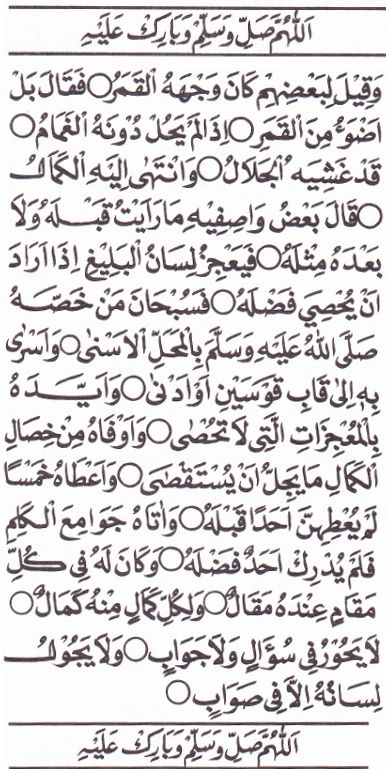 اَللّٰهُمَّ صَلِّ وَسَلِّمْ وَبَارِكْ عَلَيْهِ
وَقِيْلَ لِبَعْضِهِمْ كَانَ وَجْهَهُ الْقَمَرُ○فَقَالَ بَلْ
اَضْوَءُ مِنَ الْقَمَرِ○اِذَا لَمْ يَحُلْ دُوْنَهُ الْغَمَامُ○
قَدْ غَشِيَهُ الْجَلَالُ○وَانْتَهٰى اِلَيْهِ الْكَمَالُ
○قَالَ بَعْضُ وَاصِفِيْهِ مَا رَاَيْتُ قَبْلَهُ وَلَا
بَعْدَهُ مِثْلَهُ○فَيَعْجِزُ لِسَانُ الْبَلِيْغِ اِذَا اَرَادَ
اَنْ يُحْصِيَ فَضْلَهُ○فَسُبْحَانَ مَنْ خَصَّهُ
صَلَّى اللهُ عَلَيْهِ وَسَلَّمَ بِالْمَحَلِّ الْاَسْنٰى○وَاَسْرٰى
بِهِ اِلٰى قَابِ قَوْسَيْنِ اَوْ اَدْنٰى○وَاَيَّدَهُ
بِالْمُعْجِزَاتِ الَّتِيْ لَا تُحْصٰى○وَاَوْفَاهُ مِنْ خِصَالِ
الْكَمَالِ مَا يَجِلُّ اَنْ يُسْتَقْصٰى○وَاَعْطَاهُ خَمْسًا
لَمْ يُعْطِهِنَّ اَحَدًا قَبْلَهُ○وَاٰتَاهُ جَوَامِعَ الْكَلِمِ
فَلَمْ يُدْرِكْ اَحَدٌ فَضْلَهُ○وَكَانَ لَهُ فِيْ كُلِّ
مَقَامٍ عِنْدَهُ مَقَالٌ○وَلِكُلِّ كَمَالٍ مِنْهُ كَمَالٌ○
لَا يَحُوْرُ فِيْ سُؤَالٍ وَلَا جَوَابٍ○وَلَا يَجُوْلُ
لِسَانُهُ اِلَّا فِيْ صَوَابٍ○
اَللّٰهُمَّ صَلِّ وَسَلِّمْ وَبَارِكْ عَلَيْهِ